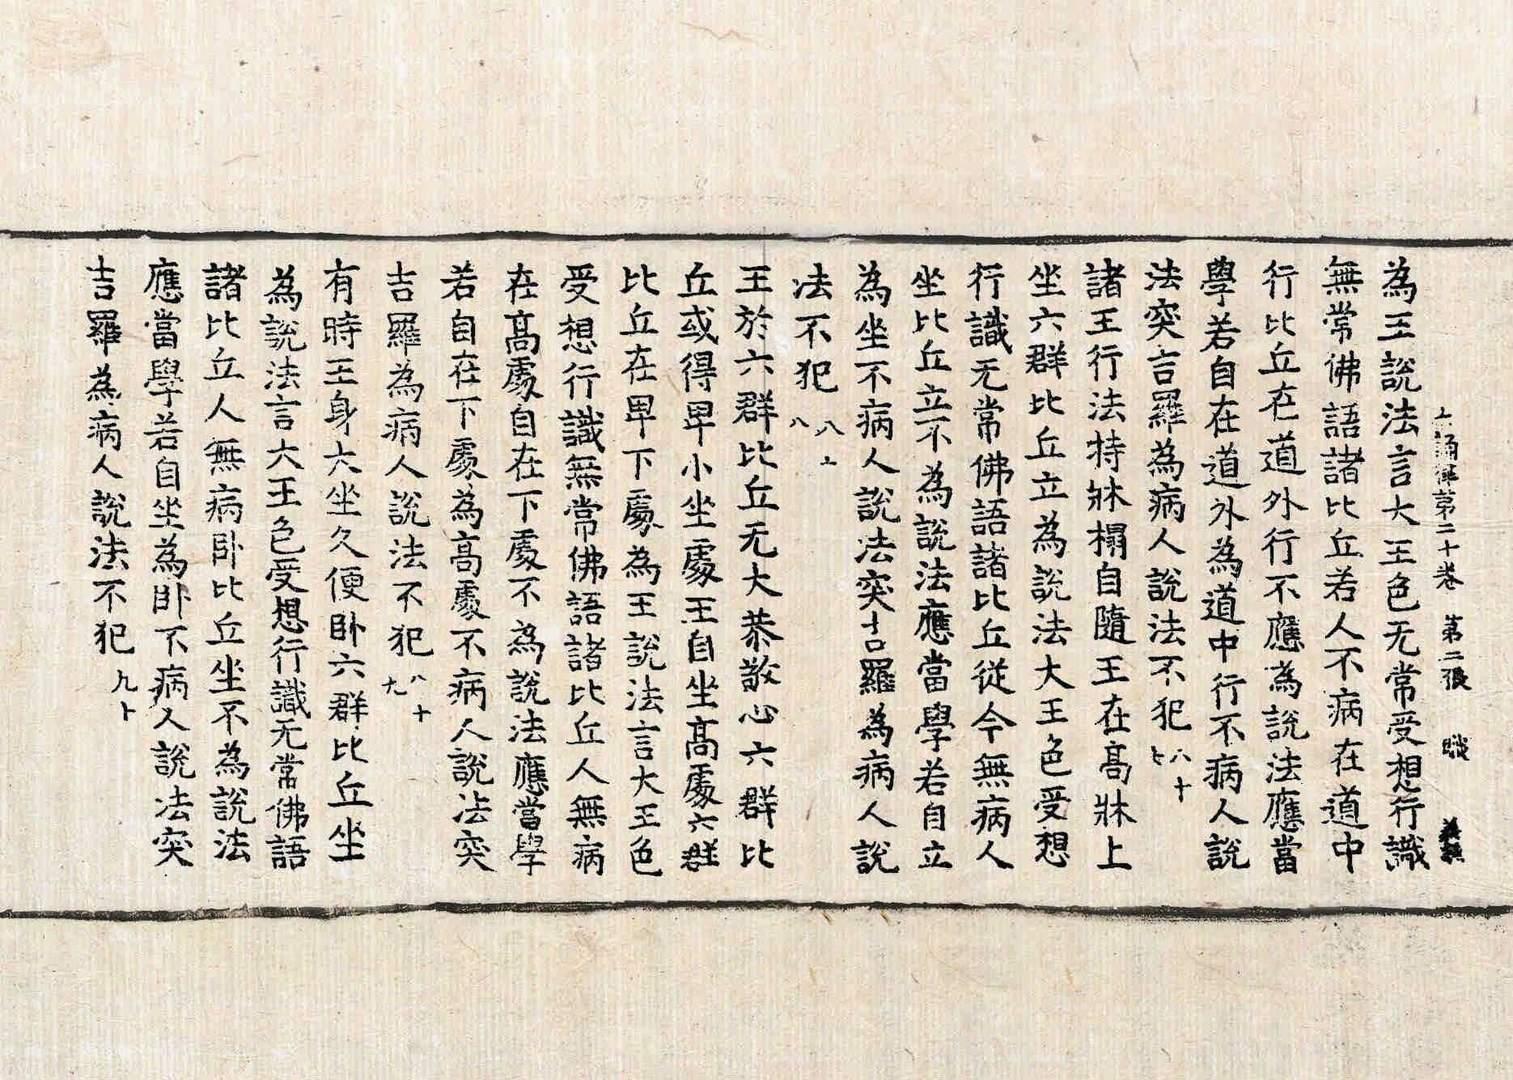 十誦律第二十卷 第二張 職
為王說法言大王色无常受想行識
無常佛語諸比丘若人不病在道中
行比丘在道外行不應為說法應當
學若自在道外為道中行不病人說
法突吉羅為病人說法不犯 八十七
諸王行法持牀榻自隨王在髙牀上
坐六群比丘立為說法大王色受想
行識无常佛語諸比丘從今無病人
坐比丘立不為說法應當學若自立
為坐不病人說法突吉羅為病人說
法不犯 八十八
王於六群比丘无大恭敬心六群比
丘或得卑小坐處王自坐髙處六群
比丘在卑下處為王說法言大王色
受想行識無常佛語諸比丘人無病
在髙處自在下處不為說法應當學
若自在下處為髙處不病人說法突
吉羅為病人說法不犯 八十九
有時王身大坐久便卧六群比丘坐
為說法言大王色受想行識无常佛語
諸比丘人無病卧比丘坐不為說法
應當學若自坐為卧不病人說法突
吉羅為病人說法不犯 九十